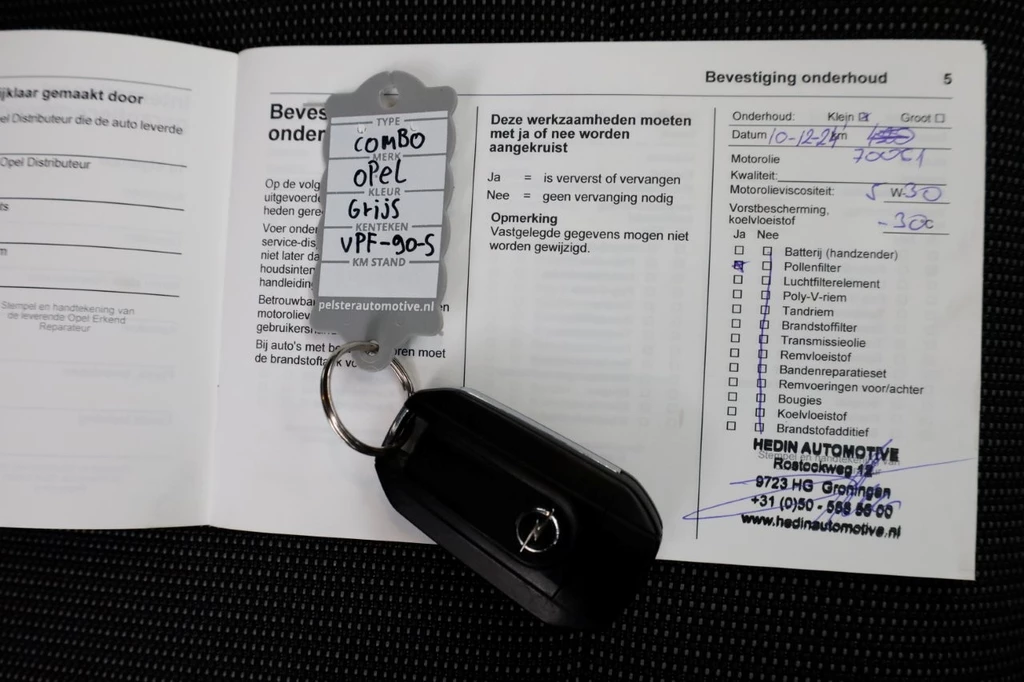 ijklaar gemaakt door
el Distributeur die de auto leverde
Opel Distributeur
ts
m
Stempel en handtekening van
de leverende Opel Erkend
Reparateur
Bevestiging onderhoud 5
Beves
onder
Op de volg
uitgevoerde
heden gere
Voer onder
service-dis
niet later da
houdsinter
handleiding
Betrouwba
motoroliev
gebruikersh
Bij auto's met be oren moet
de brandstoftank vo
TYPE
COMBO
MERK
OPEL
KLEUR
GRIJS
KENTEKEN
VPF-90-S
KM STAND
pelsterautomotive.nl
Deze werkzaamheden moeten
met ja of nee worden
aangekruist
Ja = is ververst of vervangen
Nee = geen vervanging nodig
Opmerking
Vastgelegde gegevens mogen niet
worden gewijzigd.
Onderhoud: Klein ☒ Groot ☐
Datum 10-12-24 km
70001
Motorolie
Kwaliteit:
Motorolieviscositeit: 5 W-30
Vorstbescherming,
koelvloeistof -30c
Ja Nee
Batterij (handzender)
Pollenfilter
Luchtfilterelement
Poly-V-riem
Tandriem
Brandstoffilter
Transmissieolie
Remvloeistof
Bandenreparatieset
Remvoeringen voor/achter
Bougies
Koelvloeistof
Brandstofadditief
HEDIN AUTOMOTIVE
Rostockweg 12
9723 HG Groningen
+31 (0)50 - 568 56 00
www.hedinautomotive.nl